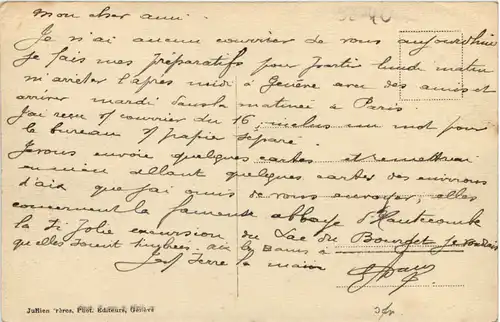 mon cher ami.
Je n'ai aucun courrier de vous aujourdhui
je fais mes préparatifs pour partir lundi matin
m'arreter l'après midi à Genève avec des amis et
arriver mardi dans la matinée à Paris.
J'ai reçu / courrier du 16, inclus un mot pour
le bureau / papier séparé.
Je vous envoie quelques cartes et remettrai
en allant quelques cartes des environs
d'aix que j'ai omis de vous envoyer, elles
concernent la fameuse abbaye d'Hautecombe
la si jolie excursion du Lac du Bourget je voulais
qu'elles soient timbrées aix les Bains
serre la main
Jullien frères, Phot. Editeurs, Genève